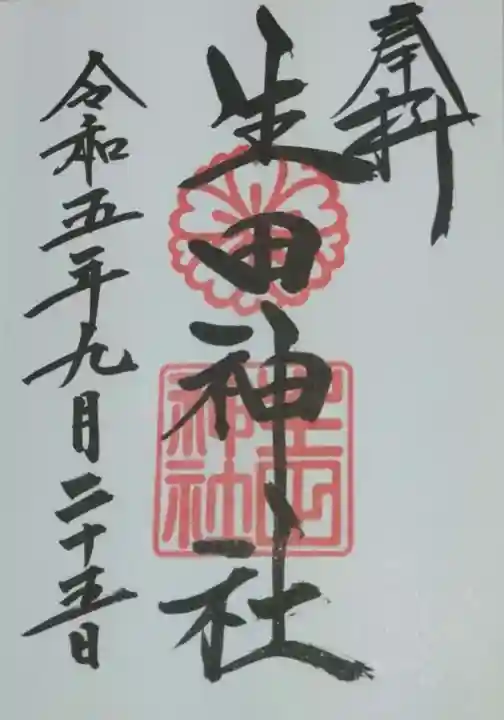 奉拝
生田神社
生田神社
令和五年九月二十五日